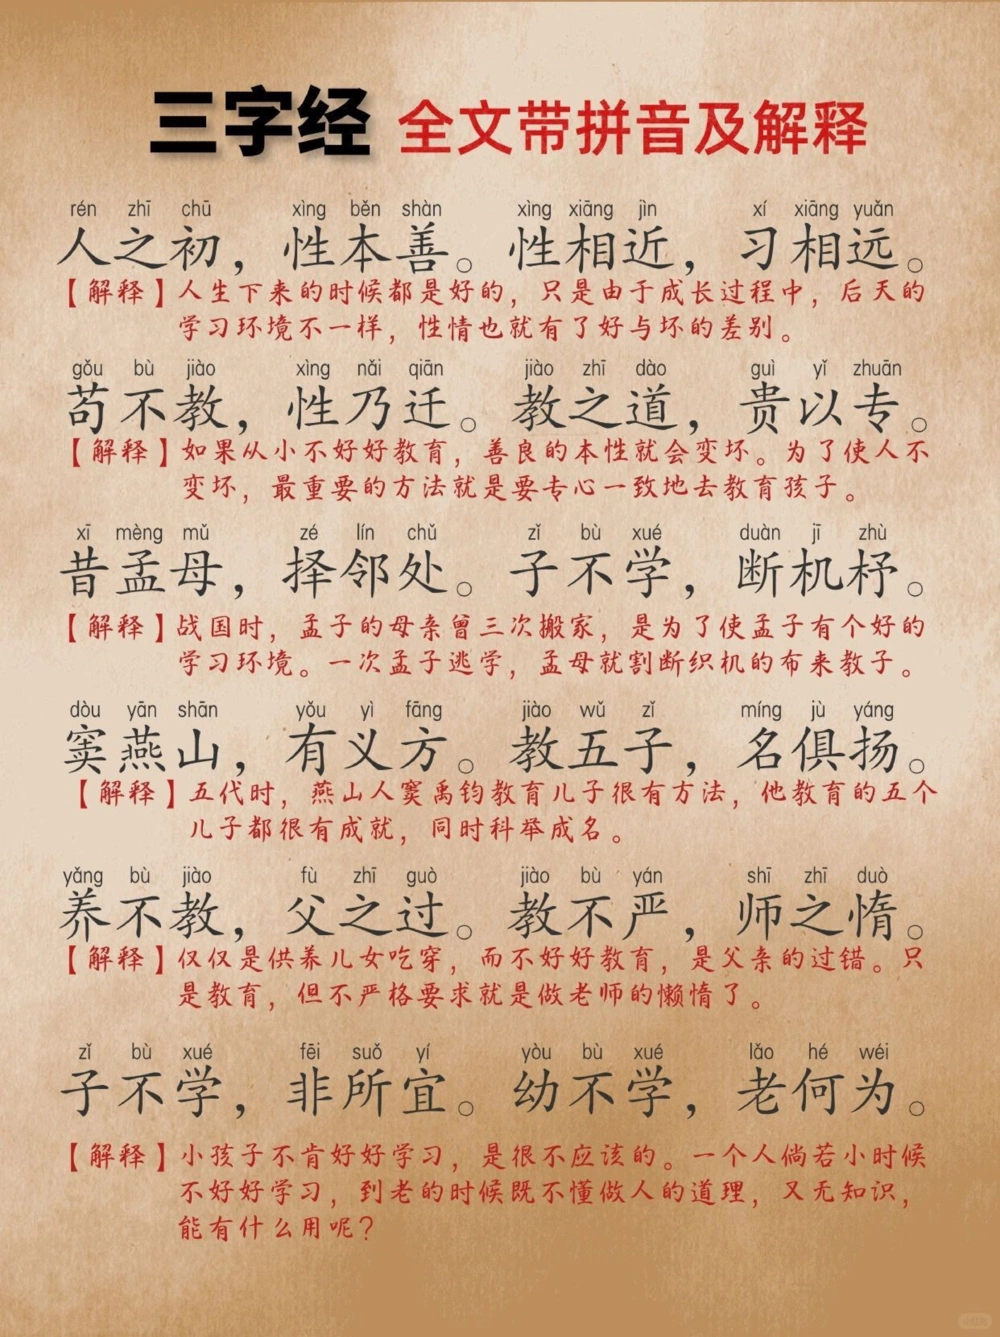 三字经 全文带拼音及解释
rén zhī chū xìng běn shàn xìng xiāng jìn xí xiāng yuǎn
人之初，性本善。性相近，习相远。
【解释】人生下来的时候都是好的，只是由于成长过程中，后天的
学习环境不一样，性情也就有了好与坏的差别。
gǒu bù jiào xìng nǎi qiān jiào zhī dào guì yǐ zhuān
苟不教，性乃迁。教之道，贵以专。
【解释】如果从小不好好教育，善良的本性就会变坏。为了使人不
变坏，最重要的方法就是要专心一致地去教育孩子。
xī mèng mǔ zé lín chǔ zǐ bù xué duàn jī zhù
昔孟母，择邻处。子不学，断机杼。
【解释】战国时，孟子的母亲曾三次搬家，是为了使孟子有个好的
学习环境。一次孟子逃学，孟母就割断织机的布来教子。
dòu yān shān yǒu yì fāng jiào wǔ zǐ míng jù yáng
窦燕山，有义方。教五子，名俱扬。
【解释】五代时，燕山人窦禹钧教育儿子很有方法，他教育的五个
儿子都很有成就，同时科举成名。
yǎng bù jiào fù zhī guò jiào bù yán shī zhī duò
养不教，父之过。教不严，师之惰。
【解释】仅仅是供养儿女吃穿，而不好好教育，是父亲的过错。只
是教育，但不严格要求就是做老师的懒惰了。
zǐ bù xué fēi suǒ yí yòu bù xué lǎo hé wéi
子不学，非所宜。幼不学，老何为。
【解释】小孩子不肯好好学习，是很不应该的。一个人倘若小时候
不好好学习，到老的时候既不懂做人的道理，又无知识，
能有什么用呢？